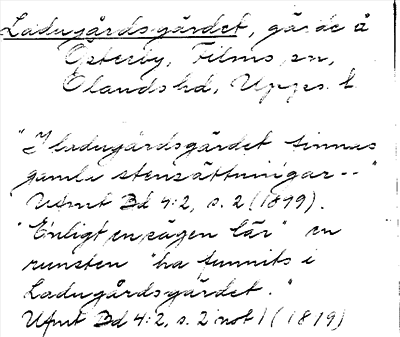 Ladugårdsgärdet, gärde å
Österby, Films sn,
Olands hd, Upps. l.
"I ladugårdsgärdet finnas
gamla stensättningar --"
Ufmt Bd 4:2, s. 2 (1819).
"Enligt en sägen lär" en
runsten "ha funnits i
Ladugårdsgärdet."
Ufmt Bd 4:2, s. 2 not 1 (1819)